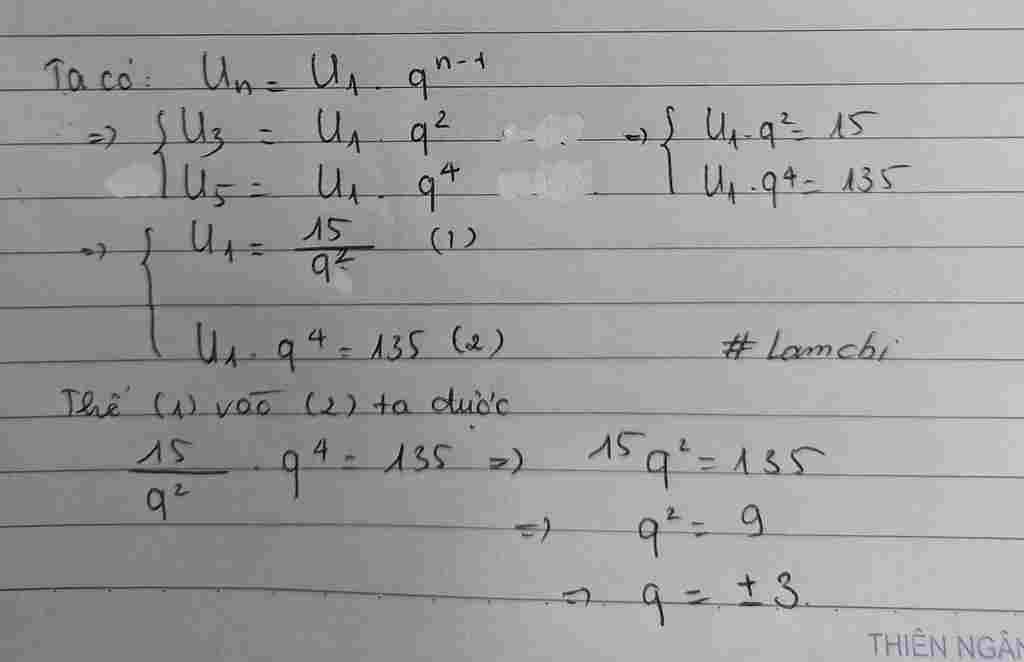 Ta có: Un = U1 . q^(n-1)
=> { U3 = U1 . q² => { U1 . q² = 15
U5 = U1 . q⁴ U1 . q⁴ = 135
=> { U1 = 15/q² (1)
U1 . q⁴ = 135 (2) # Lamchi
Thế (1) vào (2) ta được
15/q² . q⁴ = 135 => 15q² = 135
=> q² = 9
=> q = ± 3.
THIÊN NGÂN